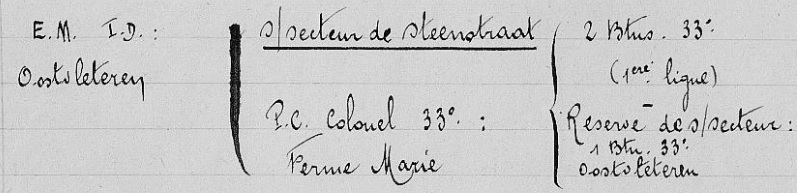 E.M. I.D. :
Oostvleteren
s/secteur de Steenstraat
P.C. Colonel 33e. :
Ferme Marie
2 Btns. 33e.
(1ere. ligne)
Réserve de s/secteur :
1 Btn. 33e.
Oostvleteren